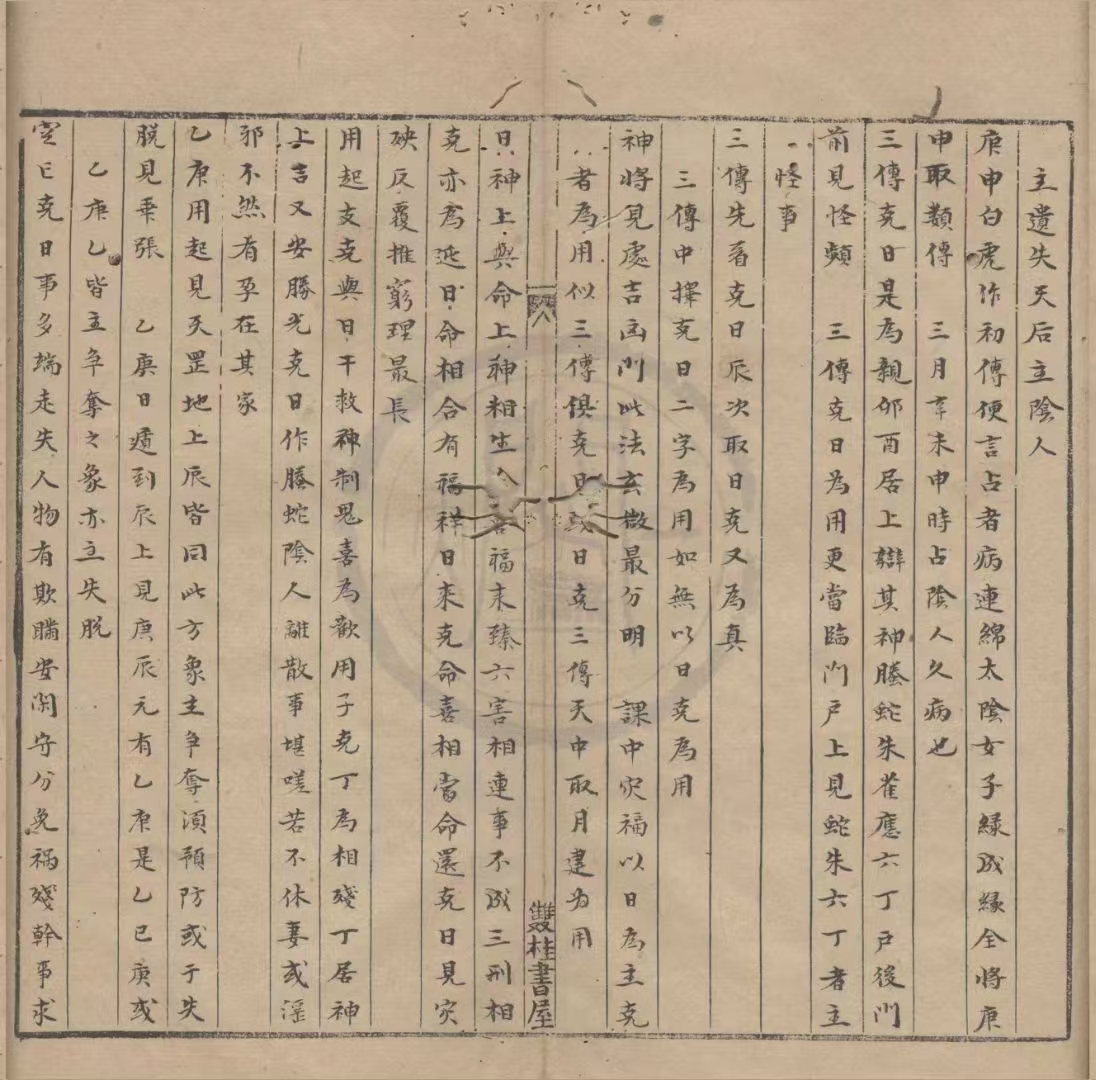 主遺失天后主陰人
庚申白虎作初傳便言占者病連綿太陰女子緣成緣全將庚
申取類傳　三月辛未申時占陰人久病也
三傳克日是為親卯酉居上辯其神螣蛇朱雀應六丁戶後門
前見怪頻　三傳克日為用更當臨門戶上見蛇朱六丁者主
怪事
三傳先看克日辰次取日克又為真
三傳中擇克日二字為用如無以日克為用
神將見處吉凶門此法玄微最分明　課中灾福以日為主克
者為用似三傳俱克日或日克三傳天中取月建为用
雙桂書屋
日神上與命上神相生福未臻六害相連事不成三刑相
克亦為逆日命相合有福祥日來克命喜相當命還克日見灾
殃反覆推窮理最長
用起支克與日干救神制鬼喜為歡用子克丁為相殘丁居神
上言又安勝光克日作螣蛇陰人離散事堪嗟若不休妻或淫
邪不然有孕在其家
乙庚用起見天罡地上辰皆同此方象主争奪須預防或于失
脱見乖張　乙庚日遁到辰上見庚辰元有乙庚是乙已庚或
乙庚乙皆主争奪之象亦立失脱
空亡克日事多端走失人物有欺瞞安閑守分免禍殘幹事求